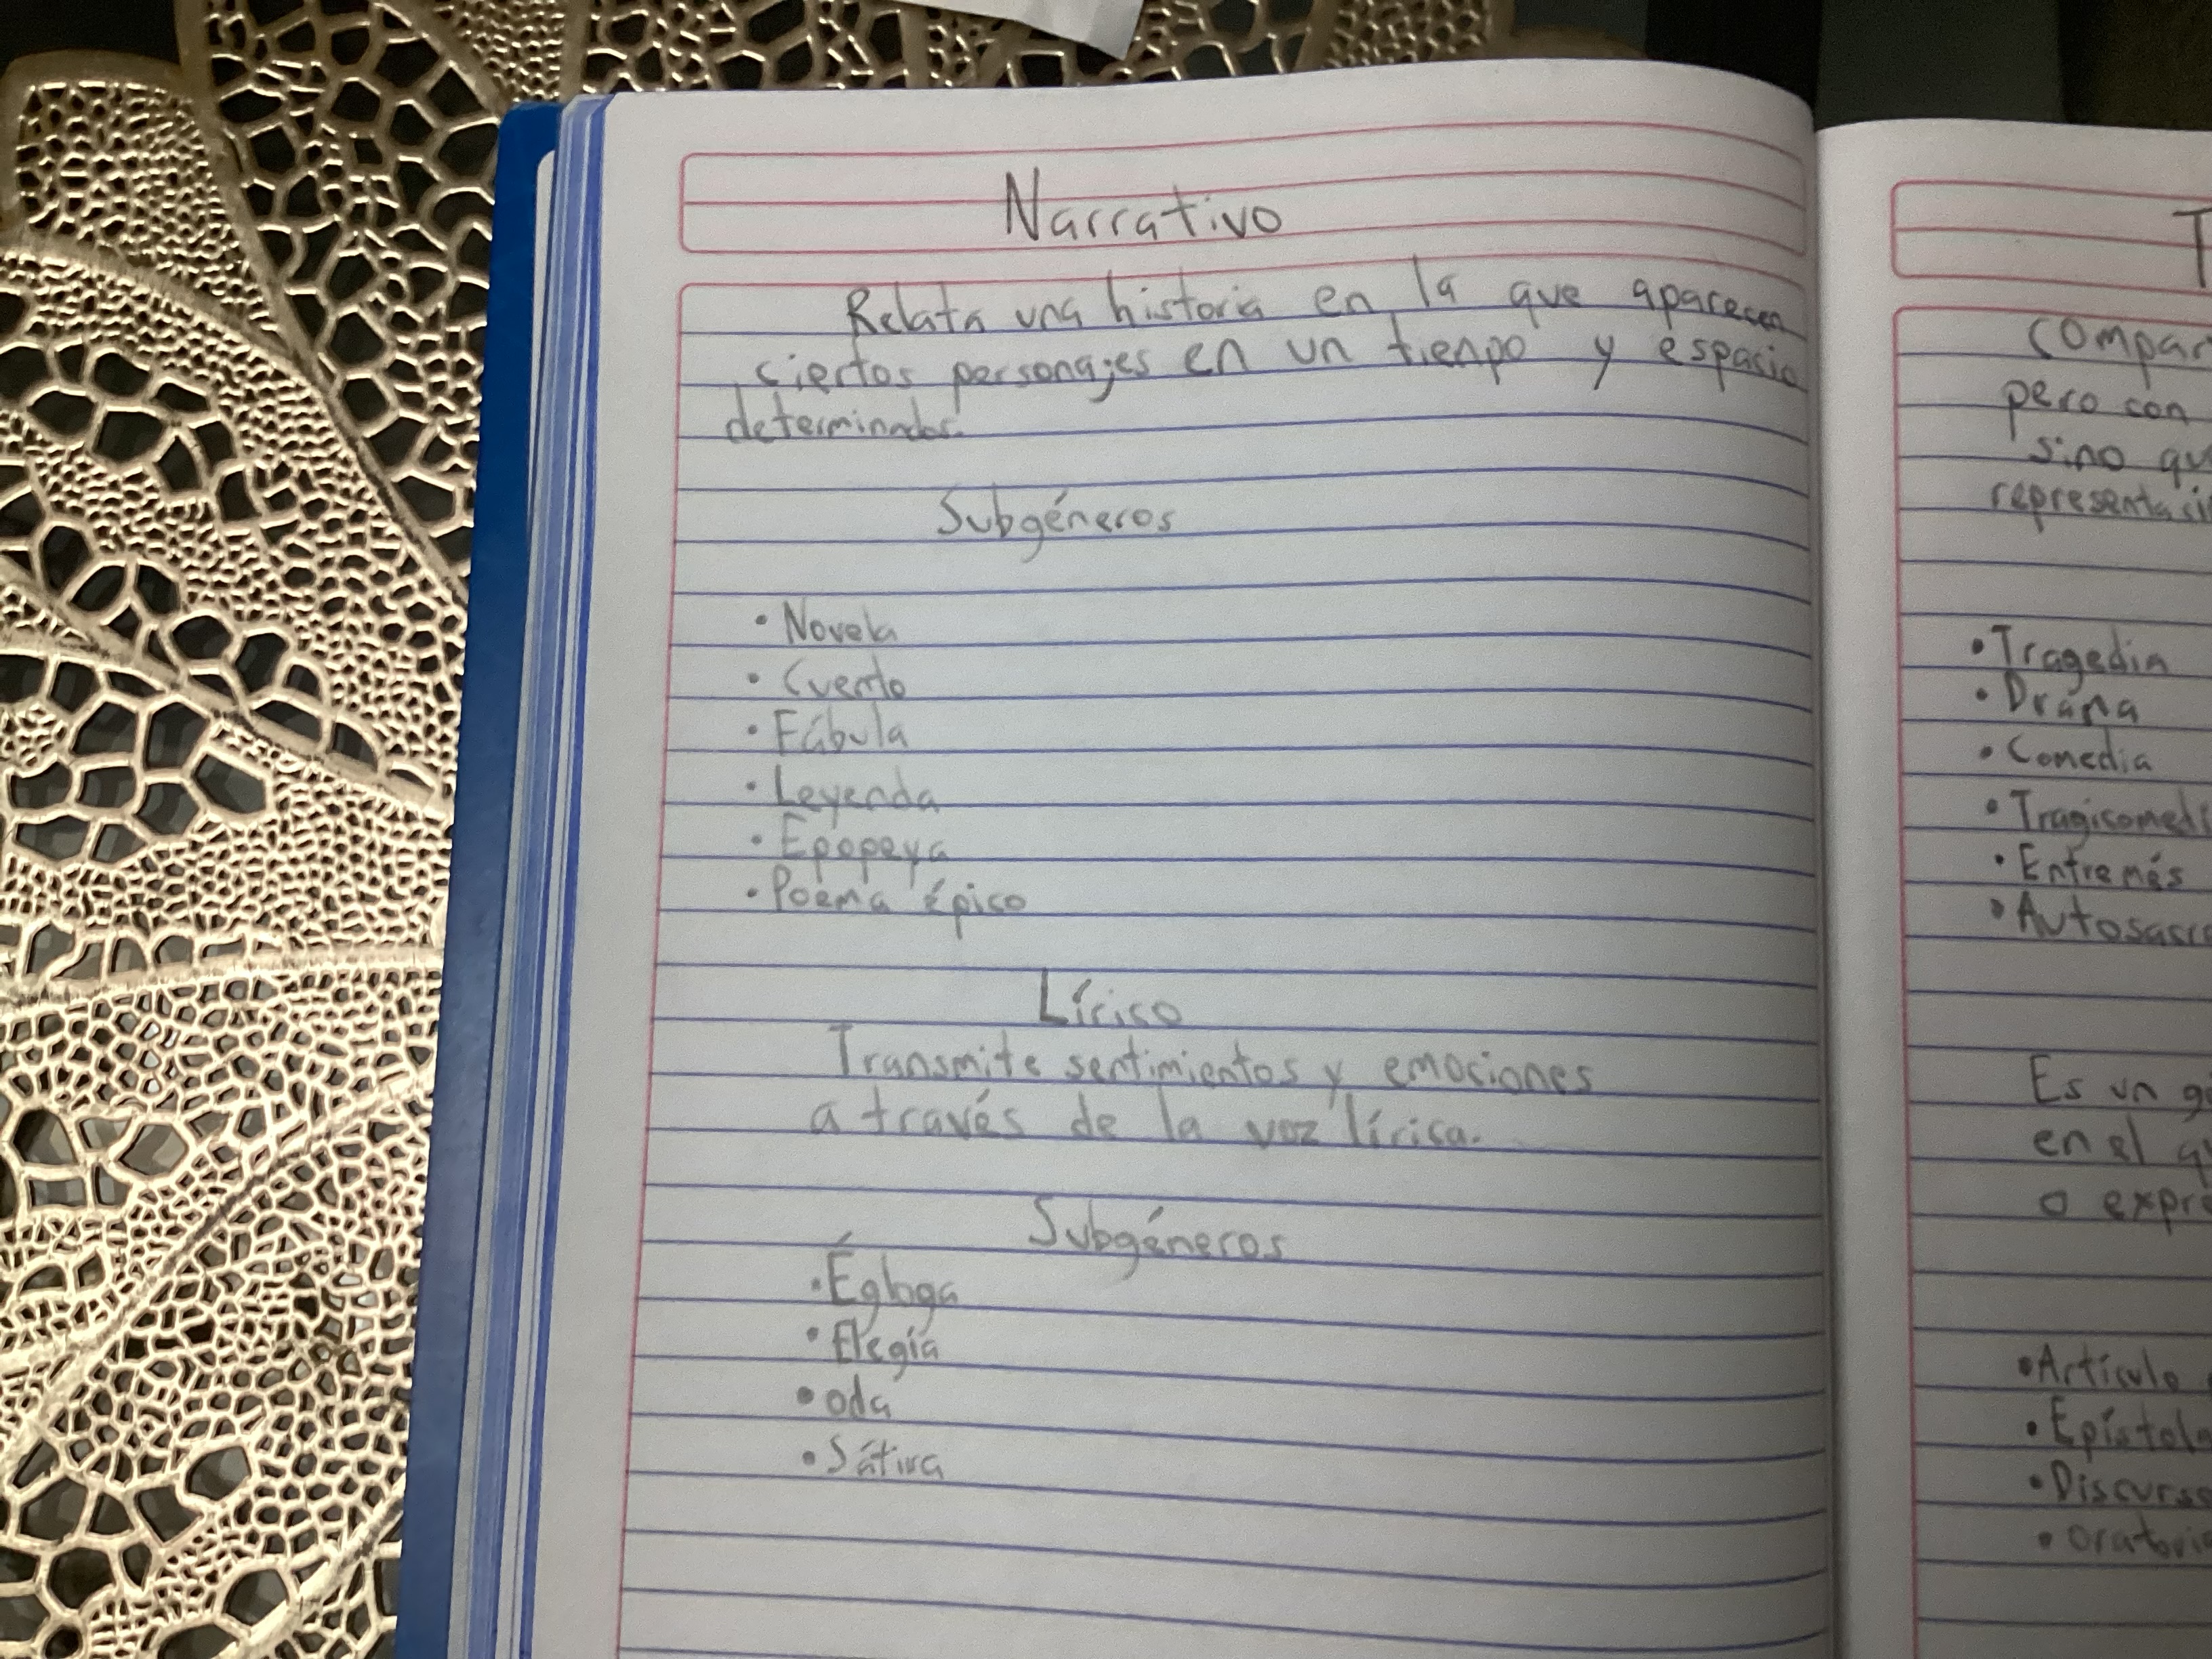 Narrativo
Relata una historia en la que aparecen
ciertos personajes en un tienpo y espacio
determinados.
Subgéneros
• Novela
• Cuento
• Fábula
• Leyenda
• Epopeya
• Poema épico
Lírico
Transmite sentimientos y emociones
a través de la voz lírica.
Subgéneros
• Égloga
• Elegía
• oda
• Sátira
T
compar
pero con
sino qu
representaci
• Tragedia
• Drama
• Comedia
• Tragicomedi
• Entremés
• Autosacra
Es un gé
en el qu
o expre
• Artículo
• Epístola
• Discurso
• oratoria